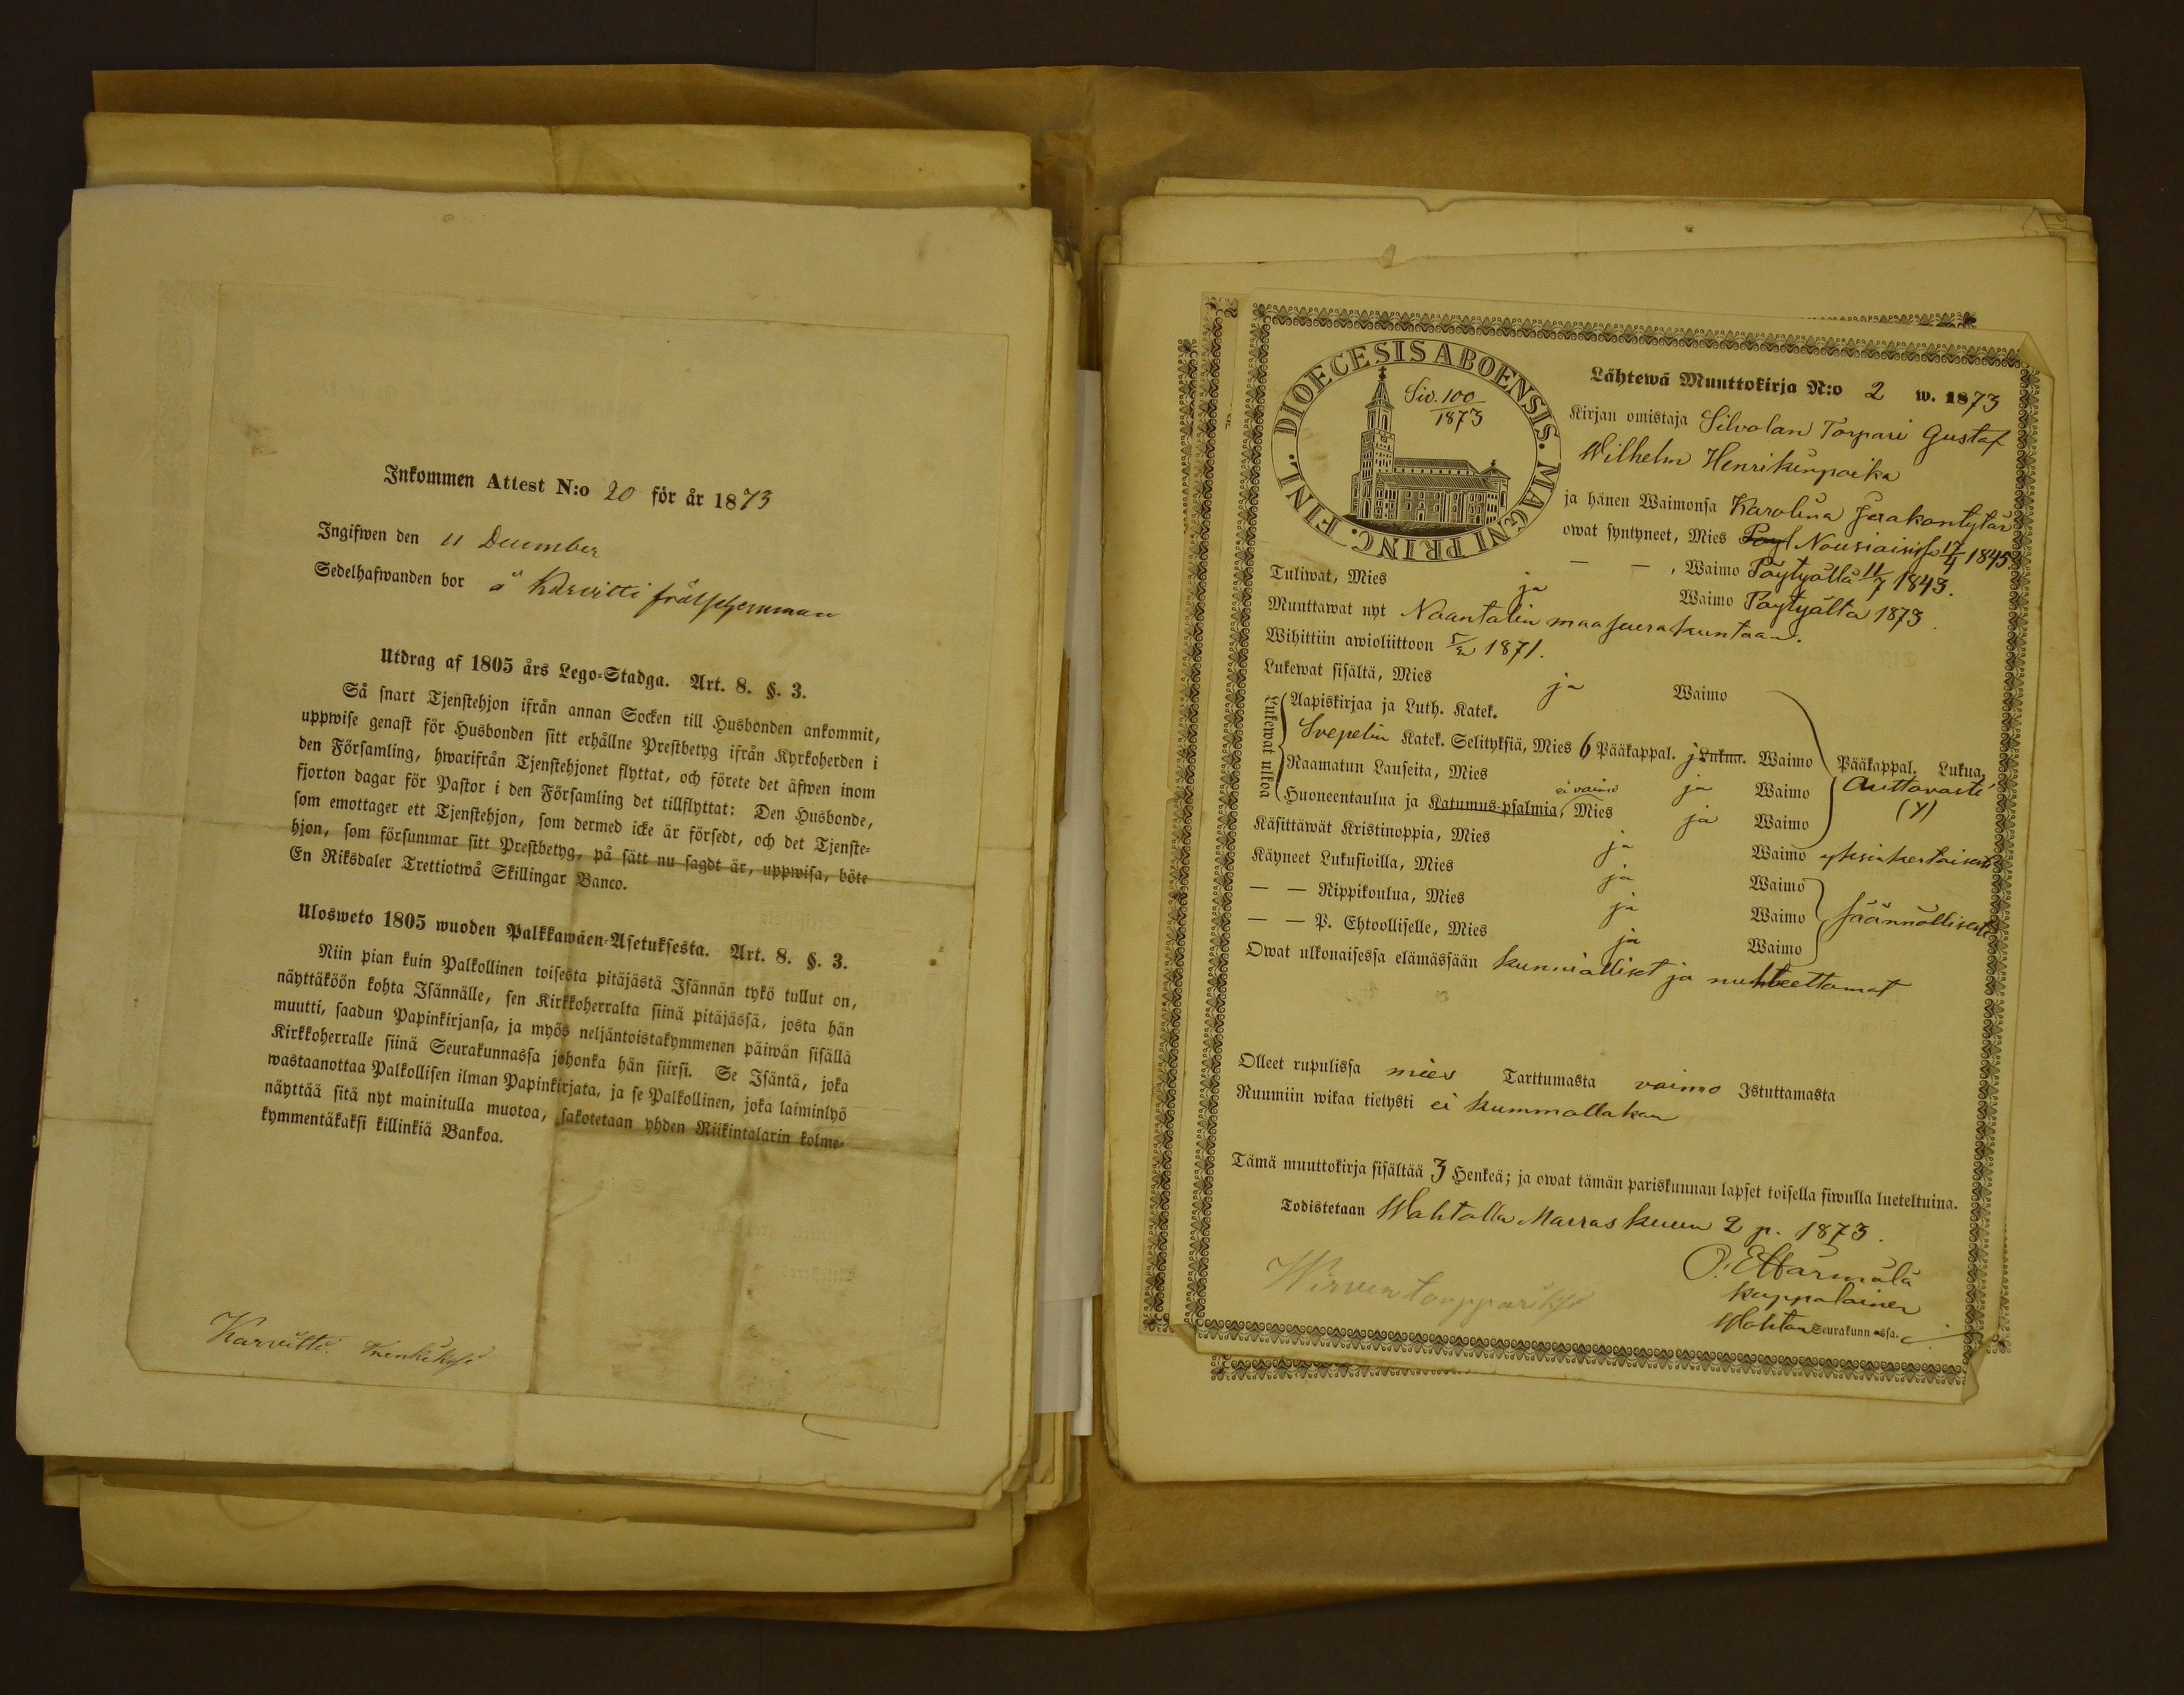 Inkommen Attest N:o 20 för år 1873
Ingifwen den 11 December
Sedelhafwanden bor å Karvitti frälsehemman
Utdrag af 1805 års Lego-Stadga. Art. 8. §. 3.
Så snart Tjenstehjon ifrån annan Socken till Husbonden ankommit,
uppwise genast för Husbonden sitt erhållne Prestbetyg ifrån Kyrkoherden i
den Församling, hwarifrån Tjenstehjonet flyttat, och förete det äfwen inom
fjorton dagar för Pastor i den Församling det tillflyttat: Den Husbonde,
som emottager ett Tjenstehjon, som dermed icke är försedt, och det Tjenste-
hjon, som försummar sitt Prestbetyg, på sätt nu sagdt är, uppwisa, böte
En Riksdaler Trettiotwå Skillingar Banco.
Ulosweto 1805 wuoden Palkkawäen-Asetuksesta. Art. 8. §. 3.
Niin pian kuin Palkollinen toisesta pitäjästä Isännän tykö tullut on,
näyttäköön kohta Isännälle, sen Kirkkoherralta siinä pitäjässä, josta hän
muutti, saadun Papinkirjansa, ja myös neljäntoistakymmenen päiwän sisällä
Kirkkoherralle siinä Seurakunnassa johonka hän siirsi. Se Isäntä, joka
wastaanottaa Palkollisen ilman Papinkirjata, ja se Palkollinen, joka laiminlyö
näyttää sitä nyt mainitulla muotoa, sakotetaan yhden Riikintalarin kolme-
kymmentäkaksi killinkiä Bankoa.
Karvitti Trenkiksi
DIOECESIS ABOENSIS. MAGNI PRINC. FINL.
Siv. 100
1873
Lähtewä Muuttokirja N:o 2 w. 1873
Kirjan omistaja Silvolan Torpari Gustaf
Wilhelm Henrikinpoika
ja hänen Waimonsa Karolina Jaakontytär
owat syntyneet, Mies Pöyt Nousiaisissa 17/4 1845.
— — , Waimo Pöytyällä 11/7 1843.
Tuliwat, Mies ja Waimo Pöytyältä 1873.
Muuttawat nyt Naantalin maaseurakuntaan.
Wihittiin awioliittoon 5/2 1871.
Lukewat sisältä, Mies ja Waimo
Lukewat ulkoa
Aapiskirjaa ja Luth. Katek.
Svepelin Katek. Selityksiä, Mies 6 Pääkappal. j Lukua. Waimo Pääkappal. Lukua.
Raamatun Lauseita, Mies ja Waimo Auttavasti
ei vaimo
(y)
Huoneentaulua ja Katumus-psalmia, Mies ja Waimo
Käsittäwät Kristinoppia, Mies ja Waimo yksinkertaisesti
Käyneet Lukusioilla, Mies ja Waimo
— — Rippikoulua, Mies ja Waimo säännöllisesti
— — P. Ehtoolliselle, Mies ja Waimo
Owat ulkonaisessa elämässään kunnialliset ja nuhteettomat
Olleet rupulissa mies Tarttumasta vaimo Istuttamasta
Ruumiin wikaa tietysti ei kummallakan
Tämä muuttokirja sisältää 3 Henkeä; ja owat tämän pariskunnan lapset toisella siwulla lueteltuina.
Todistetaan Wahtolla Marraskuun 2 p. 1873.
Härmälä
kappalainen
Wahton Seurakunnassa.